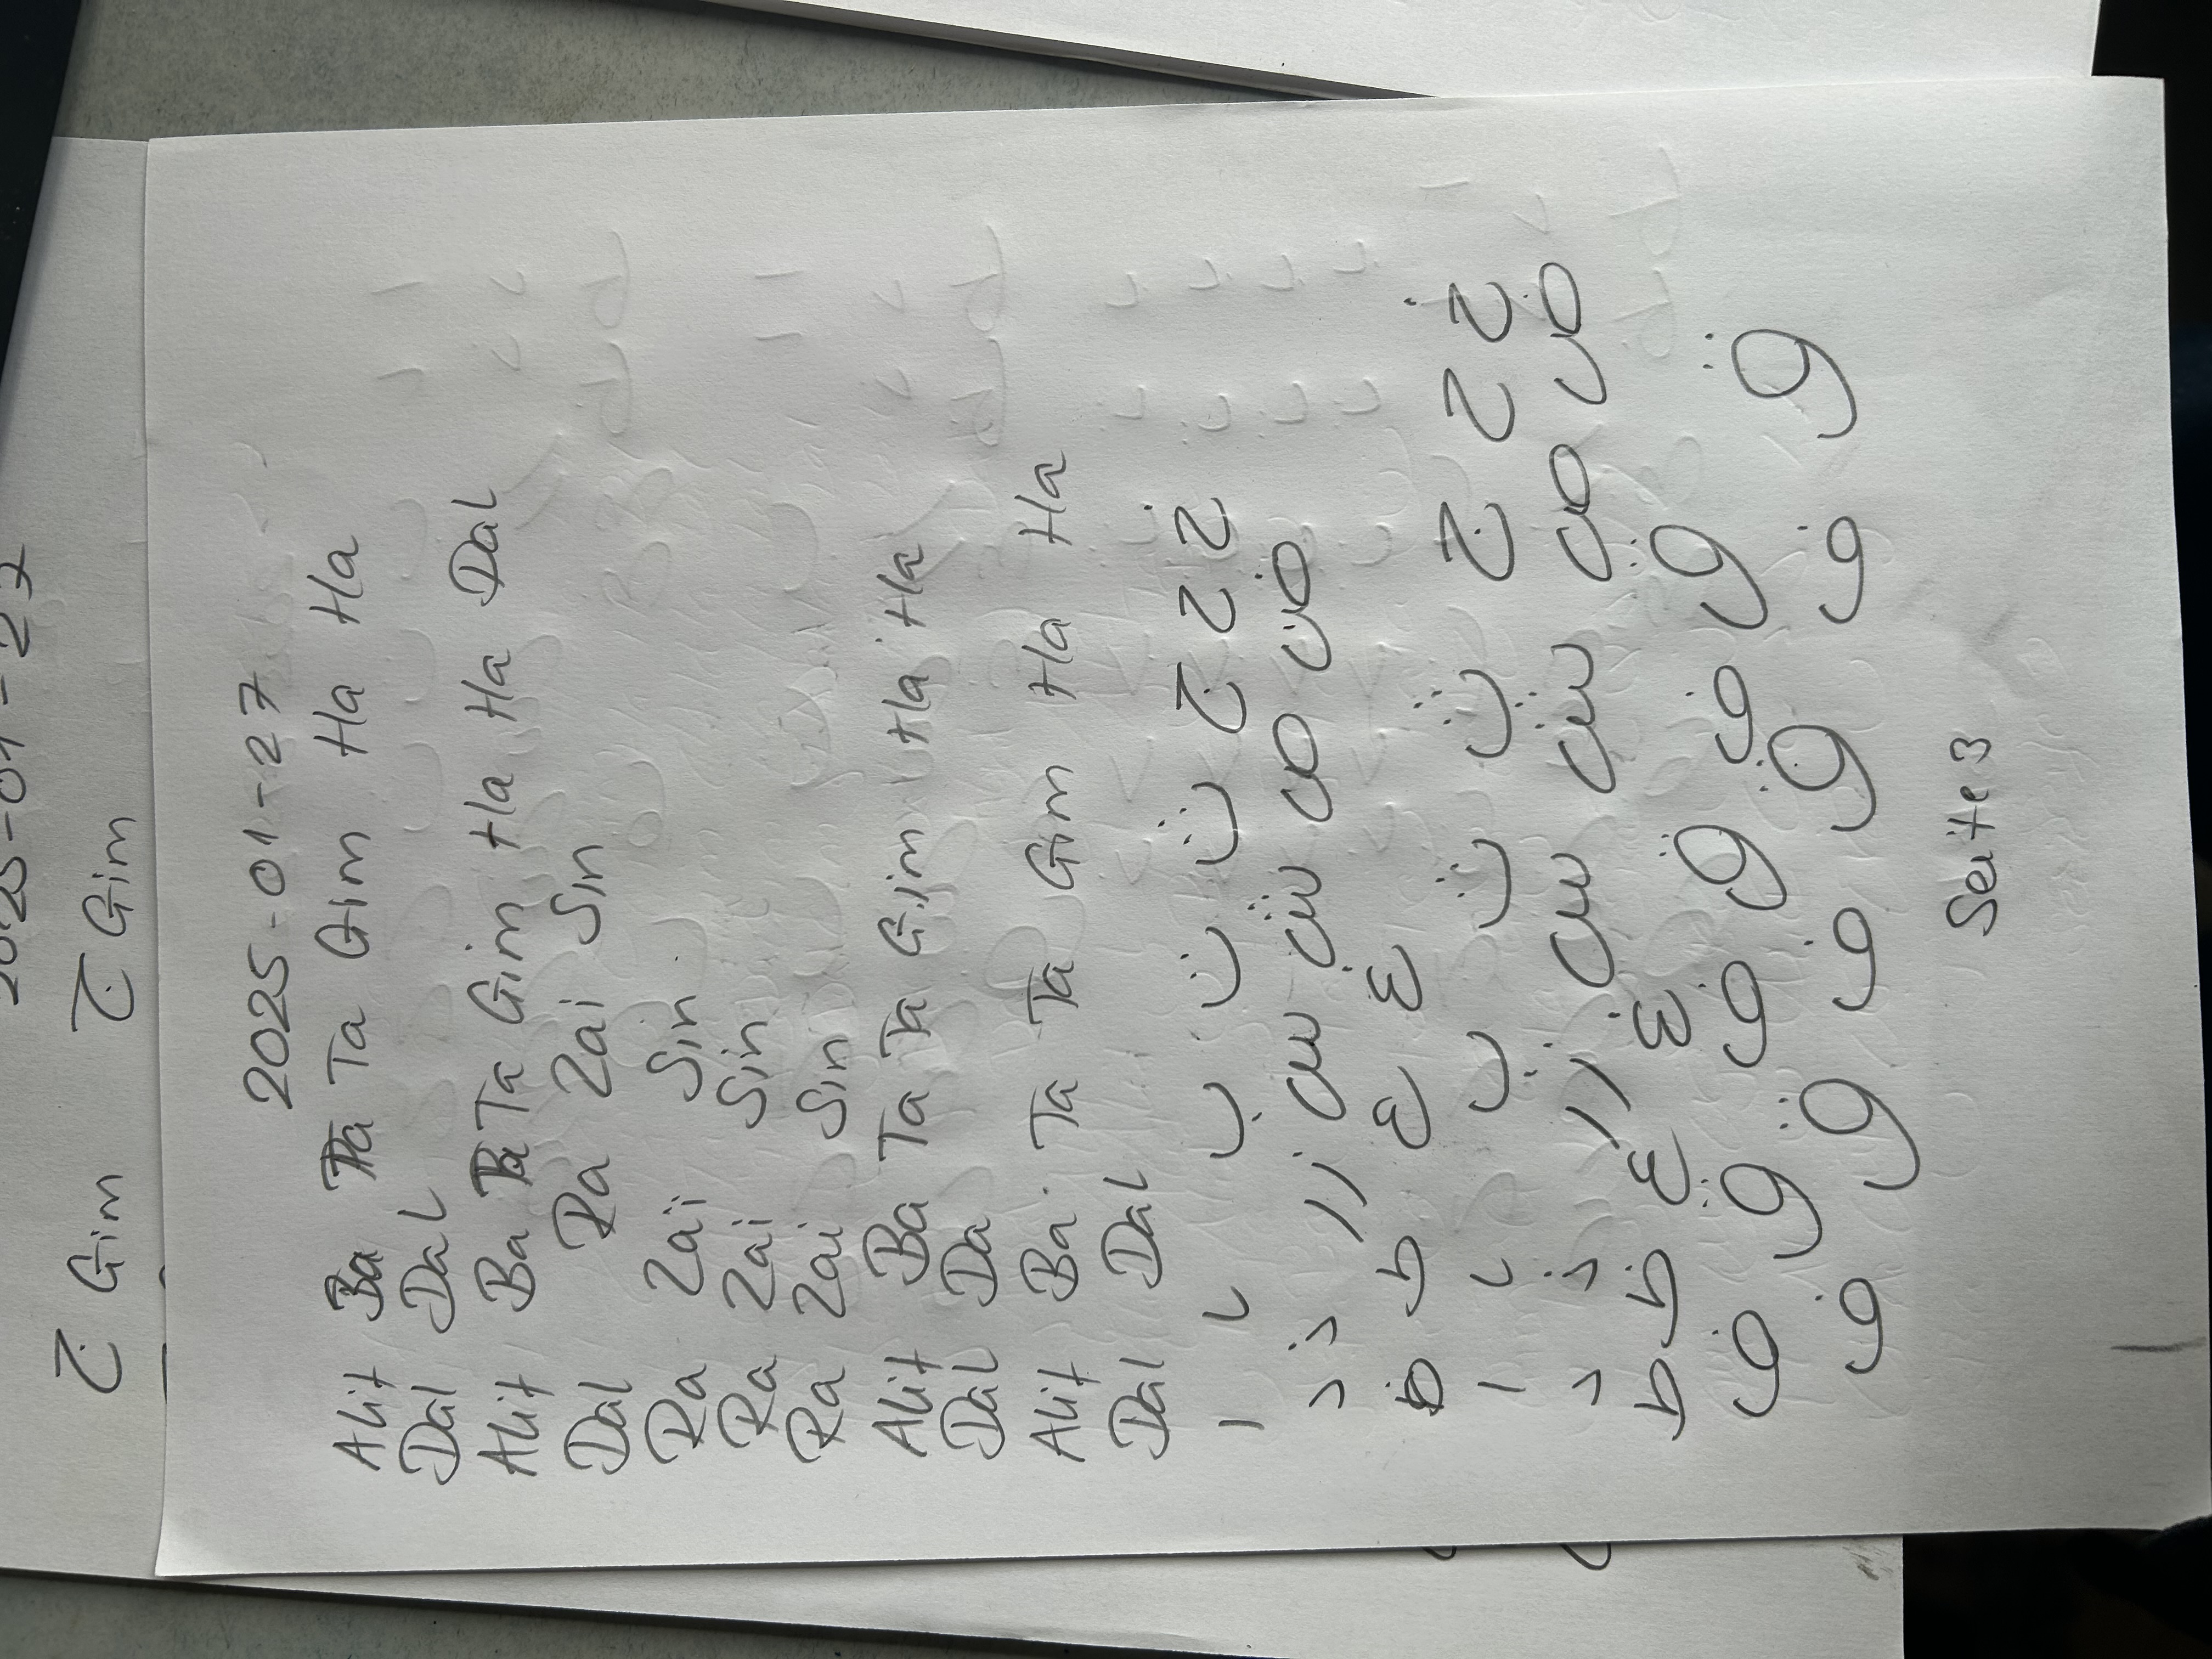 2025-01-27
ج Gim ج Gim
2025-01-27
Alif Ba Ta Ta Gim Ha Ha
Dal Dal
Alif Ba Ta Gim Ha Ha Dal
Dal Ra Zai Sin
Ra Zai Sin
Ra Zai Sin
Ra Zai Sin
Alif Ba Ta Ta Gim Ha Ha
Dal Da
Alif Ba Ta Ta Gim Ha Ha
Dal Dal
ا ب ت ث ج ح خ
د ذ ر ز س ش ص ض
ط ع غ
ا ب ت ث ج ح خ
د ذ ر ز س ش ص ض
ط ظ ع غ
ف ق ف ق ف ق
ف ق ف ق ف ق
Seite 3